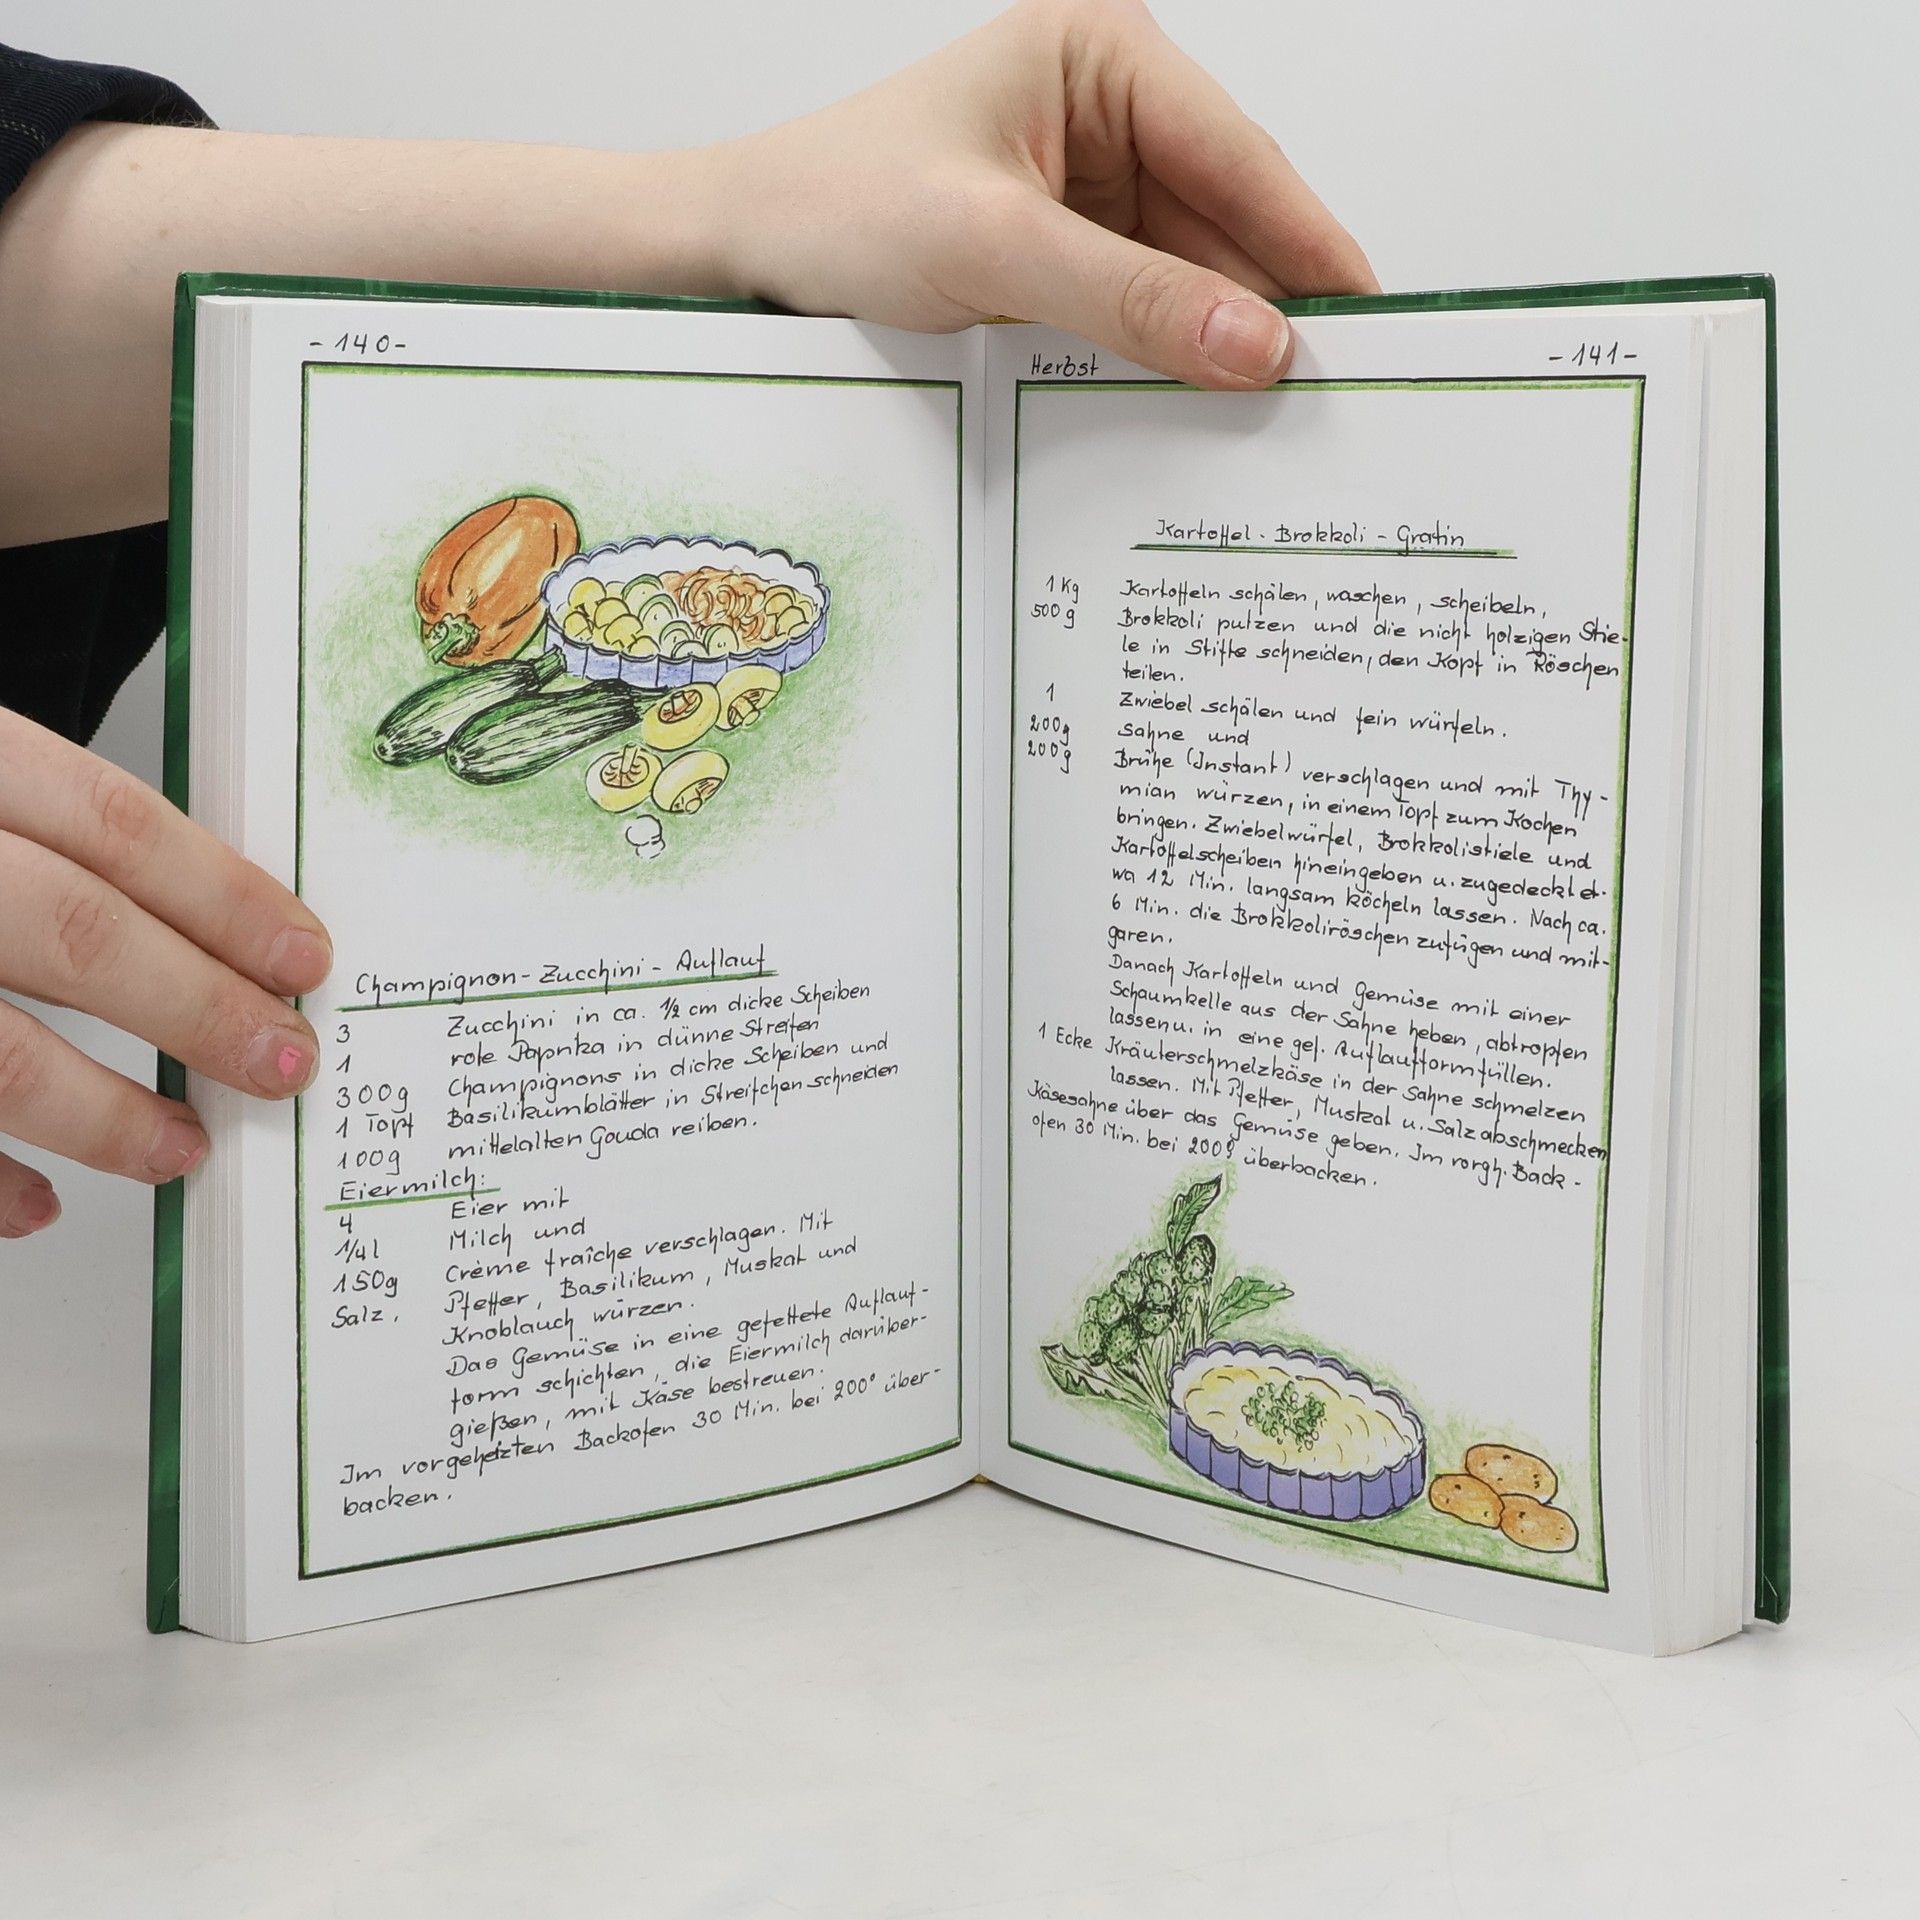 - 140 -
Champignon-Zucchini-Auflauf
3 Zucchini in ca. 1/2 cm dicke Scheiben
1 rote Paprika in dünne Streifen
300g Champignons in dicke Scheiben und
1 Topf Basilikumblätter in Streifchen schneiden
100g mittelalten Gouda reiben.
Eiermilch:
4 Eier mit
1/4 l Milch und
150g Crème fraîche verschlagen. Mit
Salz, Pfeffer, Basilikum, Muskat und
Knoblauch würzen.
Das Gemüse in eine gefettete Auflauf-
form schichten, die Eiermilch darüber-
gießen, mit Käse bestreuen.
Im vorgeheizten Backofen 30 Min. bei 200° über-
backen.
Herbst
- 141 -
Kartoffel-Brokkoli-Gratin
1 Kg Kartoffeln schälen, waschen, scheibeln,
500 g Brokkoli putzen und die nicht holzigen Stie-
le in Stifte schneiden, den Kopf in Röschen
teilen.
1 Zwiebel schälen und fein würfeln.
200g Sahne und
200g Brühe (Instant) verschlagen und mit Thy-
mian würzen, in einem Topf zum Kochen
bringen. Zwiebelwürfel, Brokkolistiele und
Kartoffelscheiben hineingeben u. zugedeckt et-
wa 12 Min. langsam köcheln lassen. Nach ca.
6 Min. die Brokkoliröschen zufügen und mit-
garen.
Danach Kartoffeln und Gemüse mit einer
Schaumkelle aus der Sahne heben, abtropfen
lassen u. in eine gef. Auflaufform füllen.
1 Ecke Kräuterschmelzkäse in der Sahne schmelzen
lassen. Mit Pfeffer, Muskat u. Salz abschmecken
Käsesahne über das Gemüse geben. Im vorgh. Back-
ofen 30 Min. bei 200° überbacken.